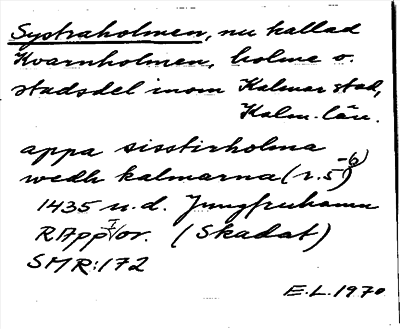 Systraholmen, nu kallad
Kvarnholmen, holme o.
stadsdel inom Kalmar stad,
Kalm. län.
appa sisstirholma
wedh kalmarna (r. 5-6)
1435 u.d. Jungfruhamn
RApp or. (Skadat)
SMR: 172
E.L. 1970